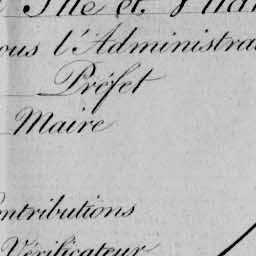 Ille et
l'Administra
Préfet
Maire
ontributions
Vérificateur